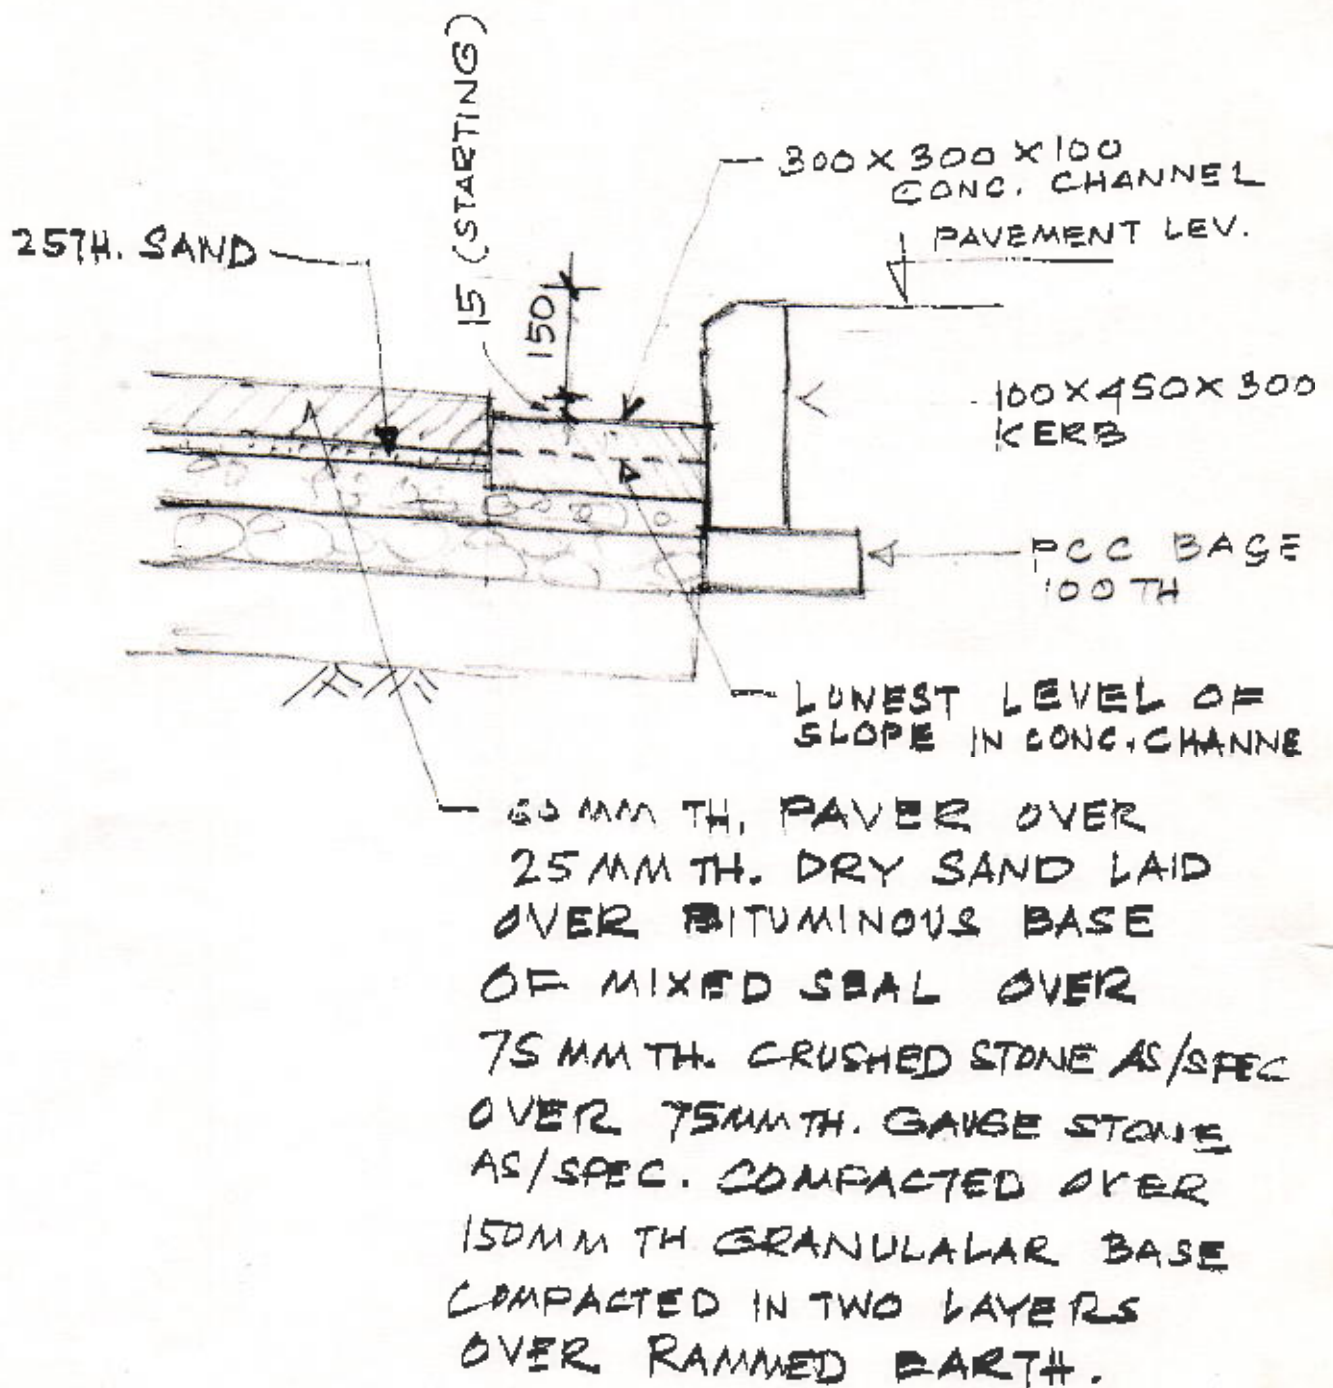 15 (STARTING)
300 X 300 X 100
CONC. CHANNEL
PAVEMENT LEV.
25TH. SAND
150
100 X 450 X 300
KERB
PCC BASE
100 TH
LONEST LEVEL OF
SLOPE IN CONC. CHANNE
60 MM TH. PAVER OVER
25 MM TH. DRY SAND LAID
OVER BITUMINOUS BASE
OF MIXED SEAL OVER
75 MM TH. CRUSHED STONE AS/SPEC
OVER 75MM TH. GAUGE STONE
AS/SPEC. COMPACTED OVER
150MM TH GRANULALAR BASE
COMPACTED IN TWO LAYERS
OVER RAMMED EARTH.